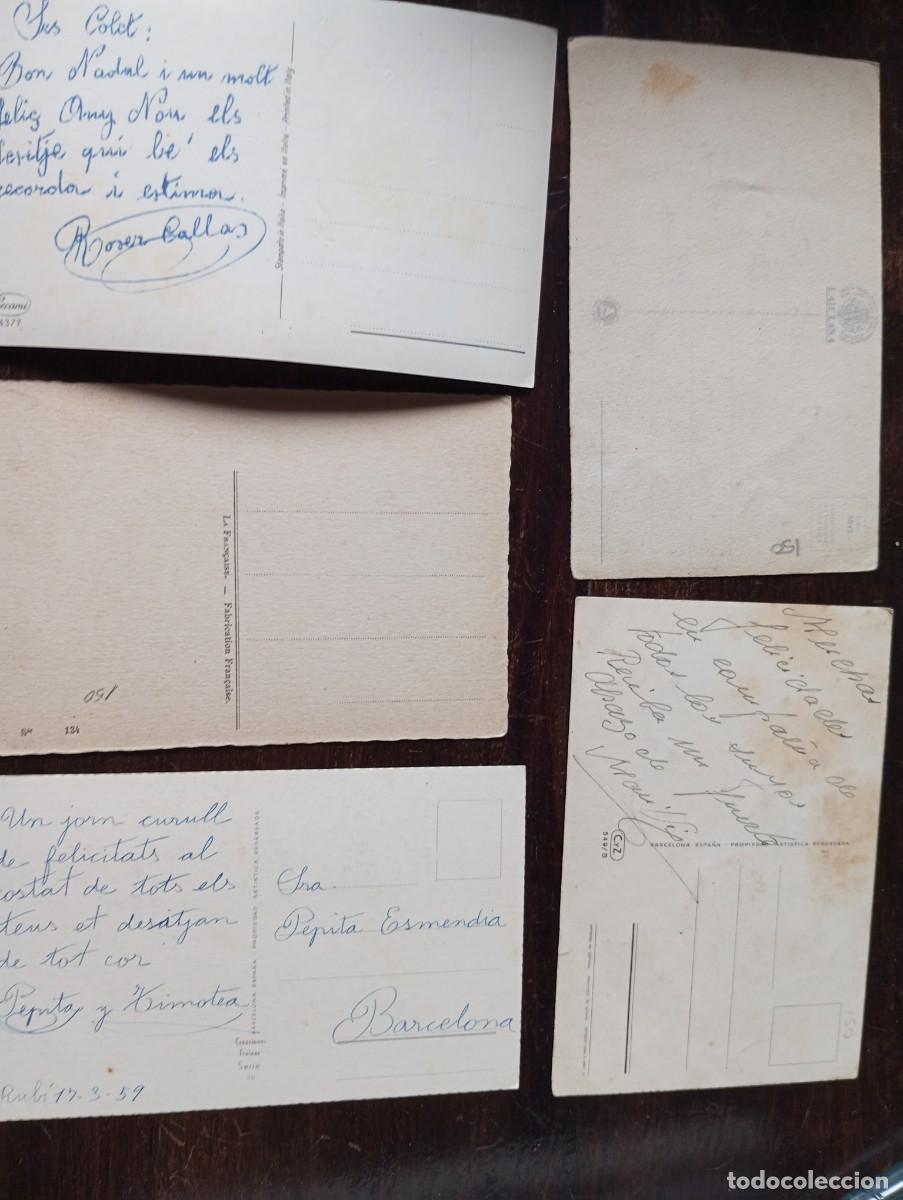 Colet:
Bon Nadal i un molt
feliç Any Nou els
desitje qui be' els
recorda i estima.
Roser Callas
Stampato in Italia - Imprimé en Italie - Printed in Italy
Cecami
4377
LAIETANA
LA FRANÇAISE. — Fabrication Française.
150
No 124
Un jorn curull
de felicitats al
costat de tots els
teus et desitjan
de tot cor
Pepita y Timotea
Rubí 17-3-59
BARCELONA ESPAÑA PROPIEDAD ARTISTICA RESERVADA
Creaciones
Serie
Sra.
Pepita Esmendia
Barcelona
Muchas
felicidades
en compañía de
todos los suyos
Reciba un fuerte
abazo de
CyZ
549/B
BARCELONA ESPAÑA - PROPIEDAD ARTISTICA RESERVADA
150
todocoleccion